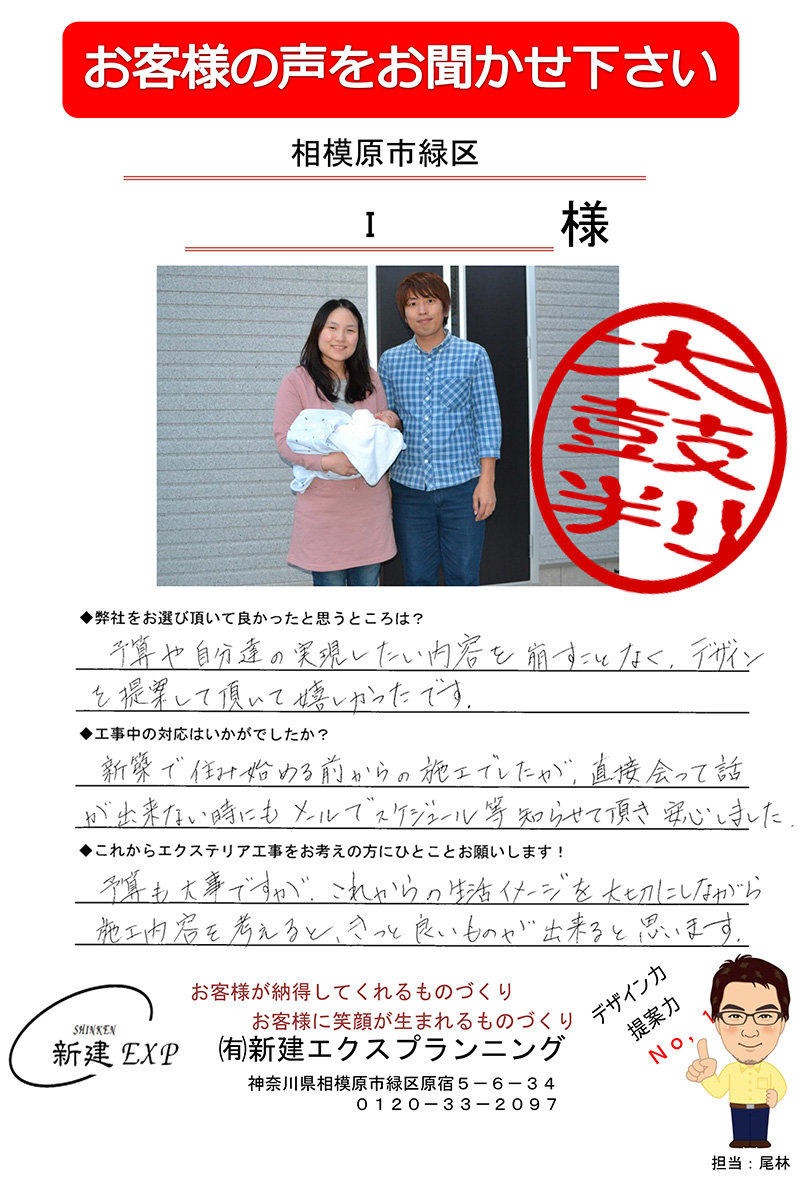 お客様の声をお聞かせ下さい
相模原市緑区
I 様
太鼓判
◆弊社をお選び頂いて良かったと思うところは？
予算や自分達の実現したい内容を崩すことなく、デザイン
を提案して頂いて嬉しかったです。
◆工事中の対応はいかがでしたか？
新築で住み始める前からの施工でしたが、直接会って話
が出来ない時にもメールでスケジュール等知らせて頂き安心しました。
◆これからエクステリア工事をお考えの方にひとことお願いします！
予算も大事ですが、これからの生活イメージを大切にしながら
施工内容を考えると、きっと良いものが出来ると思います。
SHINKEN
新建 EXP
お客様が納得してくれるものづくり
お客様に笑顔が生まれるものづくり
㈲新建エクスプランニング
神奈川県相模原市緑区原宿５－６－３４
０１２０－３３－２０９７
デザイン力
提案力
Ｎｏ，１
担当：尾林